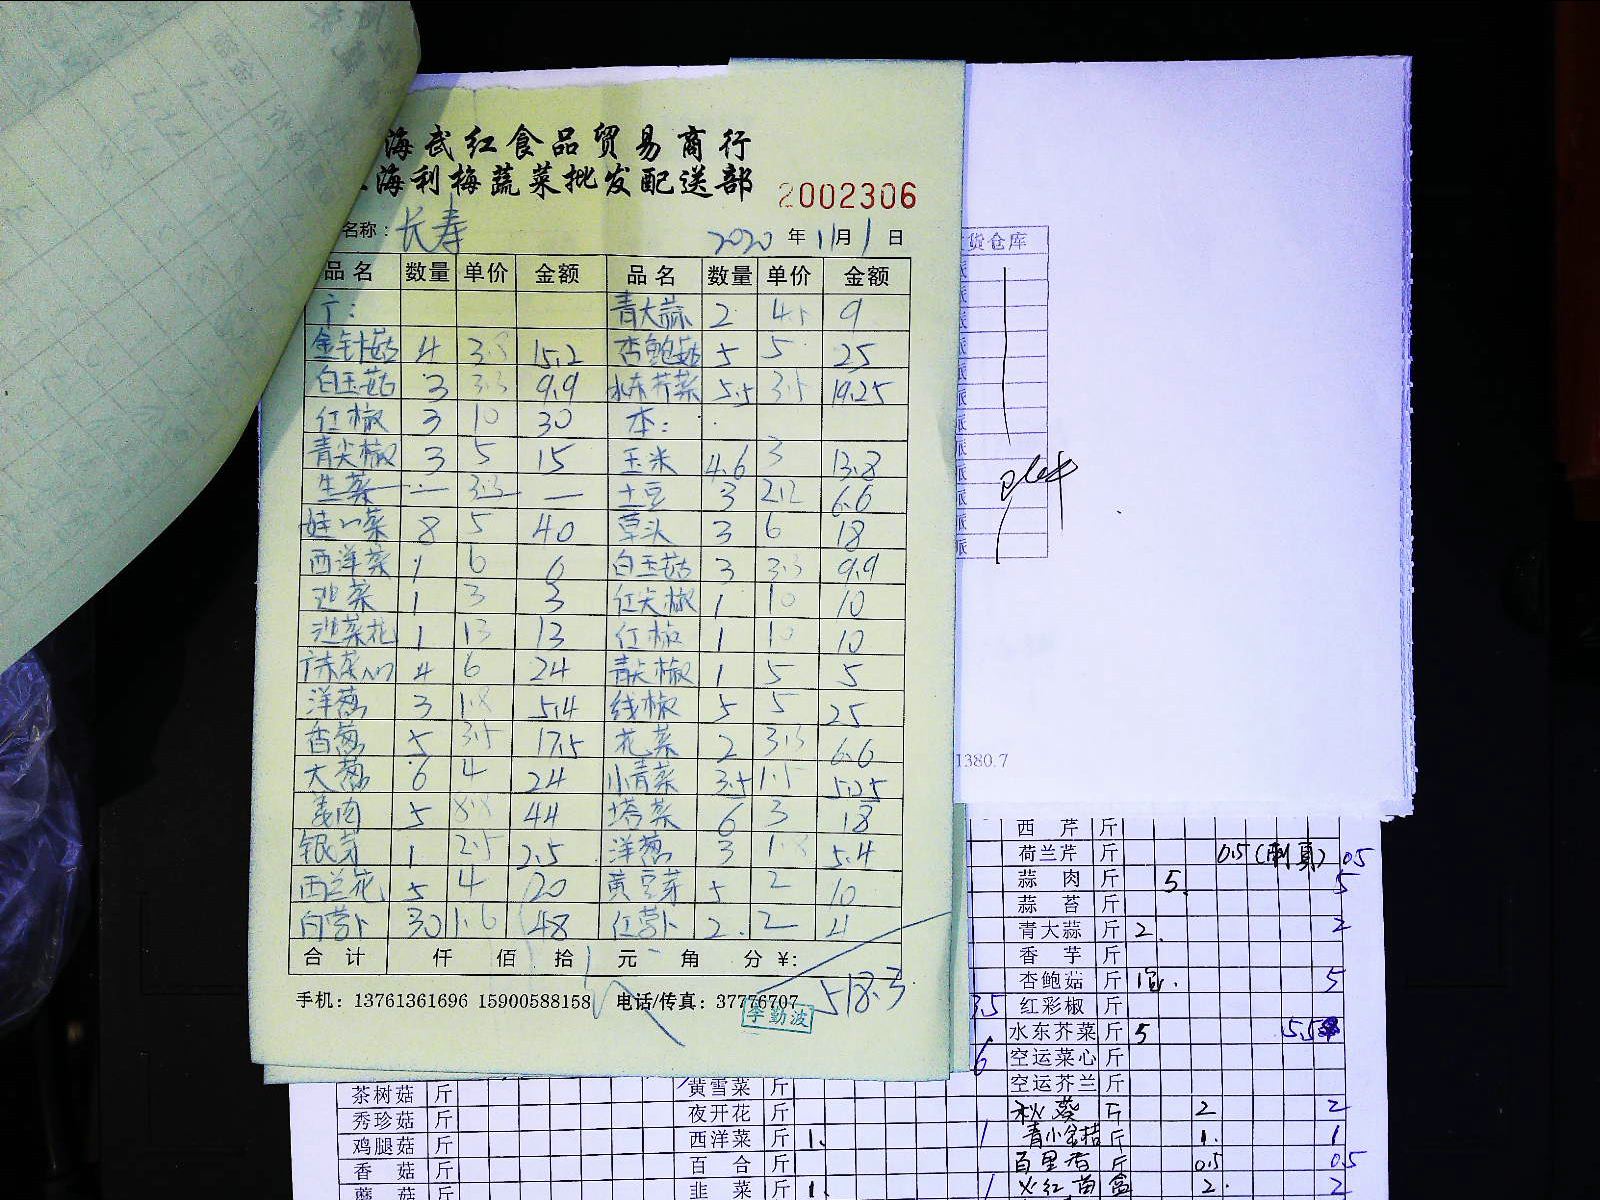 海武红食品贸易商行
海利梅蔬菜批发配送部
2002306
名称：长寿 2020 年 11 月 1 日
品名 数量 单价 金额 品名 数量 单价 金额
宁： 青大蒜 2 4.5 9
金针菇 4 3.8 15.2 杏鲍菇 5 5 25
白玉菇 3 3.3 9.9 水东芥菜 5.5 3.5 19.25
红椒 3 10 30 本：
青尖椒 3 5 15 玉米 4.6 3 13.8
生菜 — 3.3 — 土豆 3 2.2 6.6
娃娃菜 8 5 40 草头 3 6 18
西洋菜 1 6 6 白玉菇 3 3.3 9.9
韭菜 1 3 3 红尖椒 1 10 10
韭菜花 1 13 13 红椒 1 10 10
广东菜心 4 6 24 青尖椒 1 5 5
洋葱 3 1.8 5.4 线椒 5 5 25
香葱 5 3.5 17.5 花菜 2 3.3 6.6
大葱 6 4 24 小青菜 3.5 1.5 5.25
姜肉 5 8.8 44 塔菜 6 3 18
银芽 1 2.5 2.5 洋葱 3 1.8 5.4
西兰花 5 4 20 黄豆芽 5 2 10
白萝卜 30 1.6 48 红萝卜 2 2 4
合计 仟 佰 拾 元 角 分 ¥:
518.3
手机：13761361696 15900588158 电话/传真：37776707
李勤波
货仓库
派
派
派
派
派
派
派
派
派
派
派
派
1380.7
西芹 斤
荷兰芹 斤 0.5 0.5
蒜肉 斤 5. 5
蒜苔 斤
青大蒜 斤 2. 2
香芋 斤
杏鲍菇 斤 5
3.5 红彩椒 斤
水东芥菜 斤 5 5.5
6 空运菜心 斤
空运芥兰 斤
秋葵 斤 2 2
青小金桔 斤 1. 1
百里香 斤 0.5 0.5
火红苗 盒 2. 2
茶树菇 斤 黄雪菜 斤
秀珍菇 斤 夜开花 斤
鸡腿菇 斤 西洋菜 斤 1. 1
香菇 斤 百合 斤
蘑菇 斤 韭菜 斤 1. 1